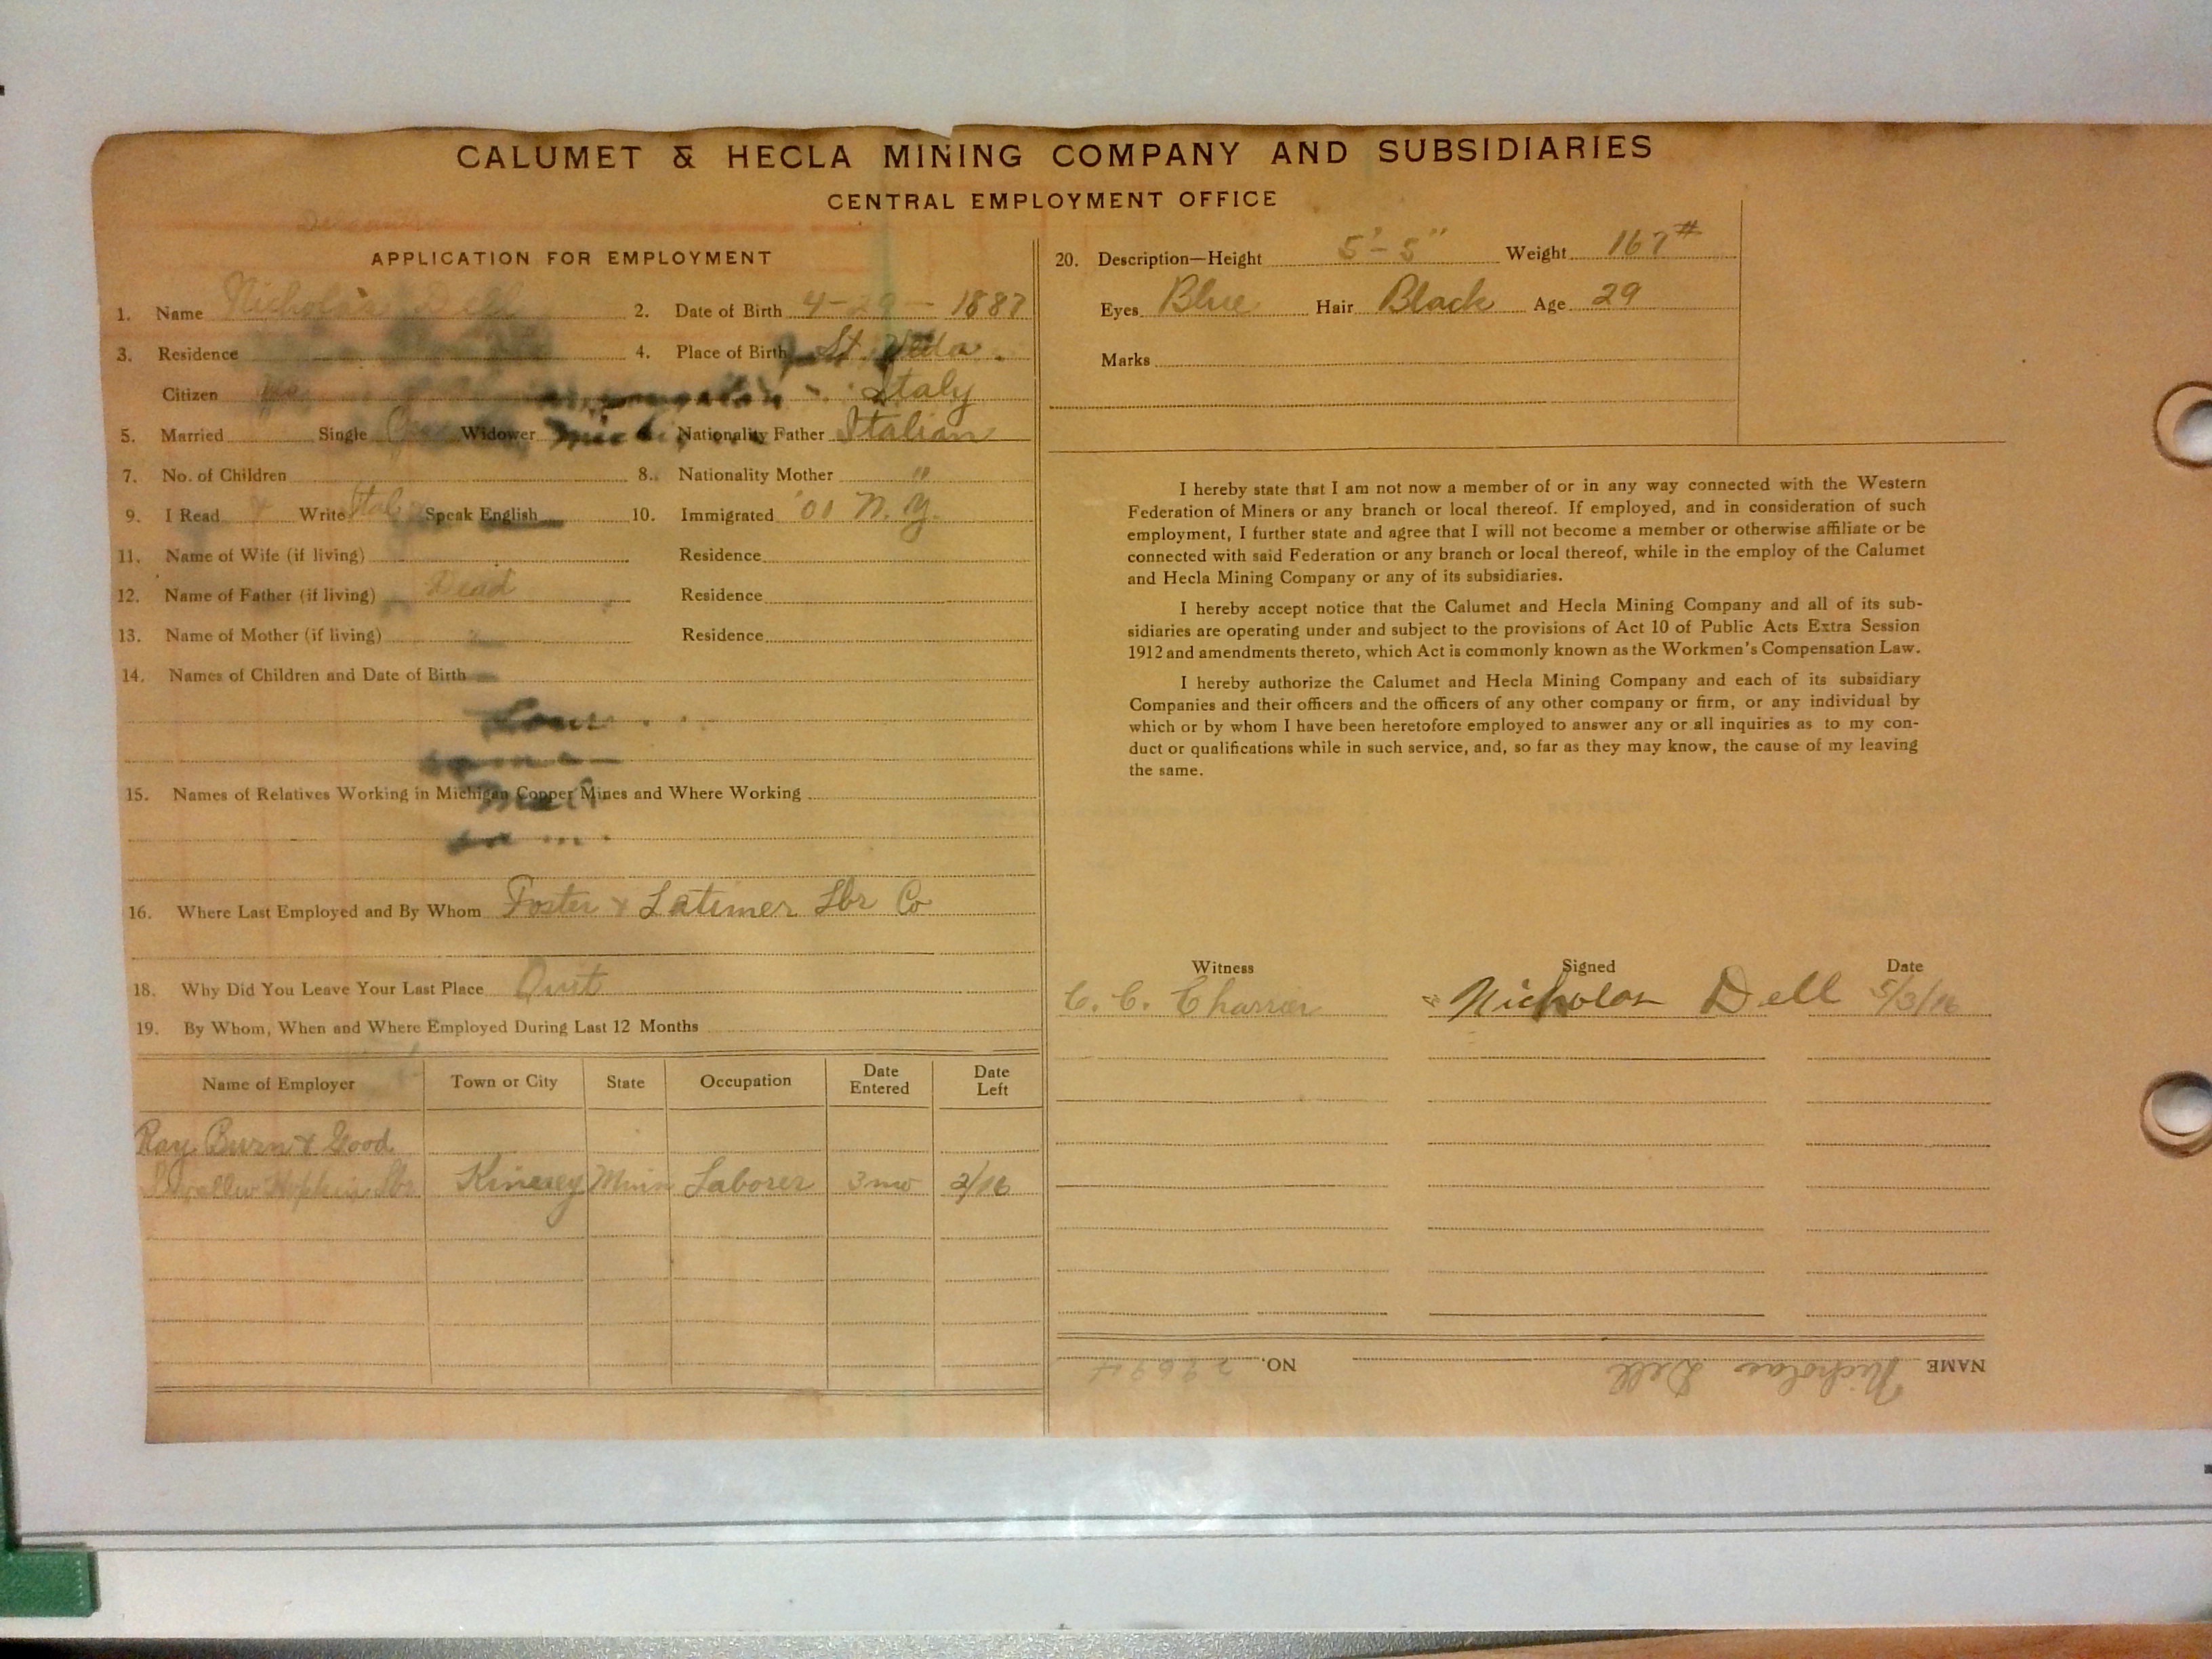 CALUMET & HECLA MINING COMPANY AND SUBSIDIARIES
CENTRAL EMPLOYMENT OFFICE
APPLICATION FOR EMPLOYMENT
1. Name Nicholas Dell 2. Date of Birth 4-29-1887
3. Residence 4. Place of Birth
Citizen Italy
5. Married Single Widower Nationality Father Italian
7. No. of Children 8. Nationality Mother "
9. I Read Write Ital Speak English 10. Immigrated '01 N.Y.
11. Name of Wife (if living) Residence
12. Name of Father (if living) Dead Residence
13. Name of Mother (if living) Residence
14. Names of Children and Date of Birth
15. Names of Relatives Working in Michigan Copper Mines and Where Working
16. Where Last Employed and By Whom Foster & Latimer Lbr Co
18. Why Did You Leave Your Last Place Quit
19. By Whom, When and Where Employed During Last 12 Months
Name of Employer Town or City State Occupation Date Entered Date Left
Ray Burn & Good
Hopkins Lbr Minn Laborer 3 mo 2/16
20. Description—Height 5'-5" Weight 167#
Eyes Blue Hair Black Age 29
Marks
I hereby state that I am not now a member of or in any way connected with the Western
Federation of Miners or any branch or local thereof. If employed, and in consideration of such
employment, I further state and agree that I will not become a member or otherwise affiliate or be
connected with said Federation or any branch or local thereof, while in the employ of the Calumet
and Hecla Mining Company or any of its subsidiaries.
I hereby accept notice that the Calumet and Hecla Mining Company and all of its sub-
sidiaries are operating under and subject to the provisions of Act 10 of Public Acts Extra Session
1912 and amendments thereto, which Act is commonly known as the Workmen's Compensation Law.
I hereby authorize the Calumet and Hecla Mining Company and each of its subsidiary
Companies and their officers and the officers of any other company or firm, or any individual by
which or by whom I have been heretofore employed to answer any or all inquiries as to my con-
duct or qualifications while in such service, and, so far as they may know, the cause of my leaving
the same.
Witness Signed Date
C. C. Nicholas Dell 5/3/16
NAME Nicholas Dell NO.